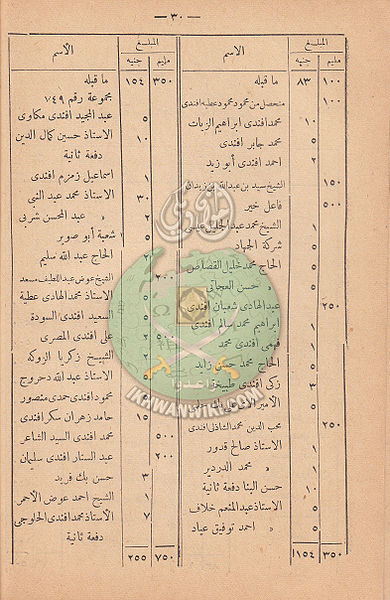 — ٣٠ —
المبلغ الاسم
مليم جنيه
١٠٠ ٨٣ ما قبله
١٠٠ متحصل من محمود محمود عطيه افندى
١٠ محمد افندى ابراهيم الزيات
٥ محمد جابر افندى
٢ احمد افندى أبو زيد
١٥٠ الشيخ سيد بن عبد الله بن زيدان
٥٠٠ فاعل خير
١ الشيخ محمد عبد الجليل عيسى
٥ شركة الجهاد
١ الحاج محمد خليل القصاص
٥ حسن العجانى
٢٥٠ عبد الهادى شعبان افندى
ابراهيم محمد سالم افندى
١ فهمى افندى محمد
١ الحاج محمد حسن زايد
٣ زكى افندى طبيخة
٥ الأمير
٢٥٠ محب الدين محمد الشاذلى افندى
الاستاذ صالح قدور
١ » محمد الدردير
١٠ حسن البنا دفعة ثانية
٥ الاستاذ عبد المنعم خلاف
٥ » احمد توفيق عياد
٣٥٠ ١١٥٤
المبلغ الاسم
مليم جنيه
٣٥٠ ١٥٤ ما قبله
مجموعة رقم ٧٤٩
٥ عبد المجيد افندى مكاوى
١٠ الاستاذ حسين كمال الدين
دفعة ثانية
١ اسماعيل زمزم افندى
٣٠ الاستاذ محمد عبد النبى
٢ » عبد المحسن شربى
٥ شعبة أبو صوير
٢ الحاج عبد الله سليم
٢٠٠ الشيخ عوض عبد اللطيف مسعد
٥ الاستاذ محمد الهادى عطية
٥ السعيد افندى السودة
٥٠٠ ٢ على افندى المصرى
٢ الشيخ زكريا الزوكه
٥ الاستاذ عبد الله دحروج
محمود افندى حمدى منصور
٥ حامد زهران سكر افندى
٥٠٠ محمد افندى السيد الشاعر
٢٠٠ عبد الستار افندى سليمان
٣ حسن بك فريد
١ الشيخ احمد عوض الأحمر
٧ الاستاذ محمد افندى الحلوجى
دفعة ثانية
٧٥٠ ٢٥٥
IKHWANWIKI.COM